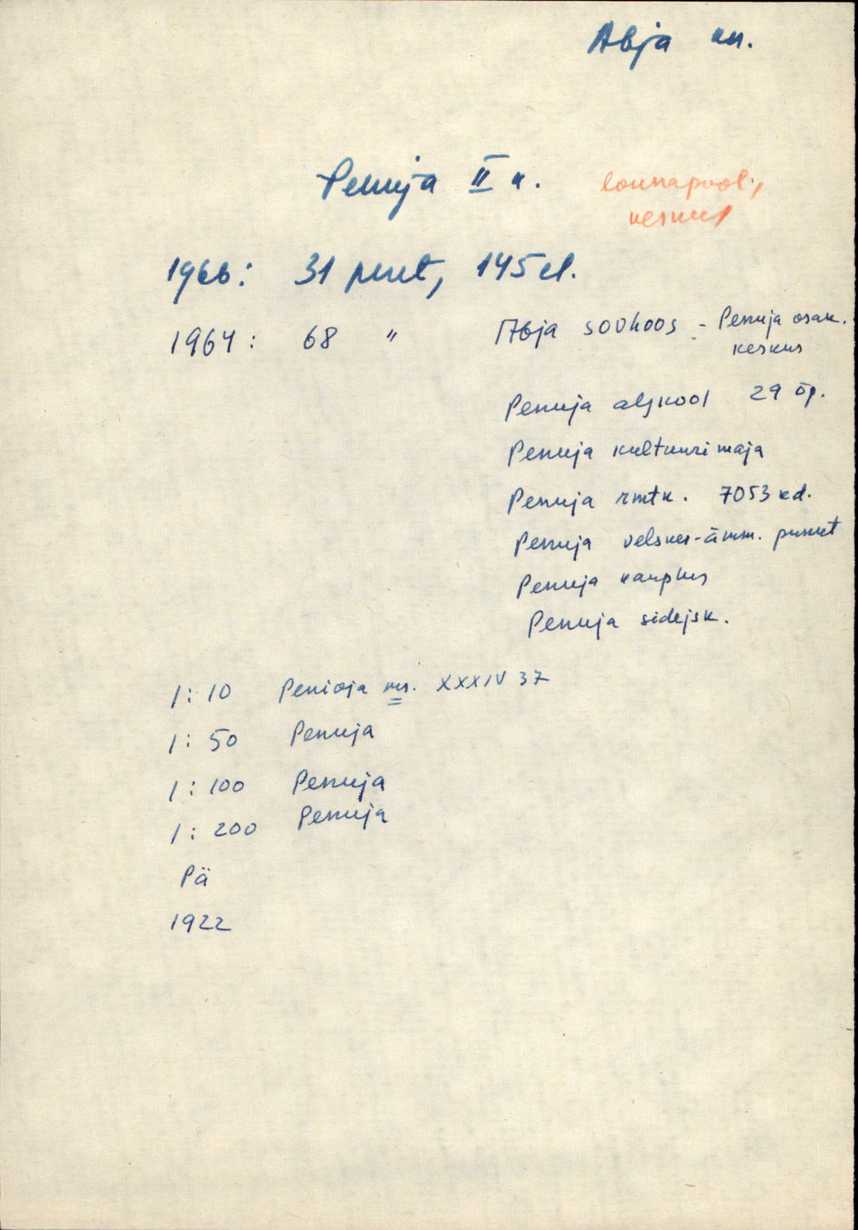 Abja kn.
Penuja II k.
lõunapool,
keskus
1966: 31 peret, 145 el.
1964: 68 " Abja sovhoos - Penuja osak.
keskus
Penuja algkool 29 õp.
Penuja kultuurimaja
Penuja rmtk. 7053 kd.
Penuja velsker-ämm. punkt
Penuja kauplus
Penuja sidejsk.
1:10 Penioja ms. XXXIV 37
1:50 Penuja
1:100 Penuja
1:200 Penuja
Pä
1922